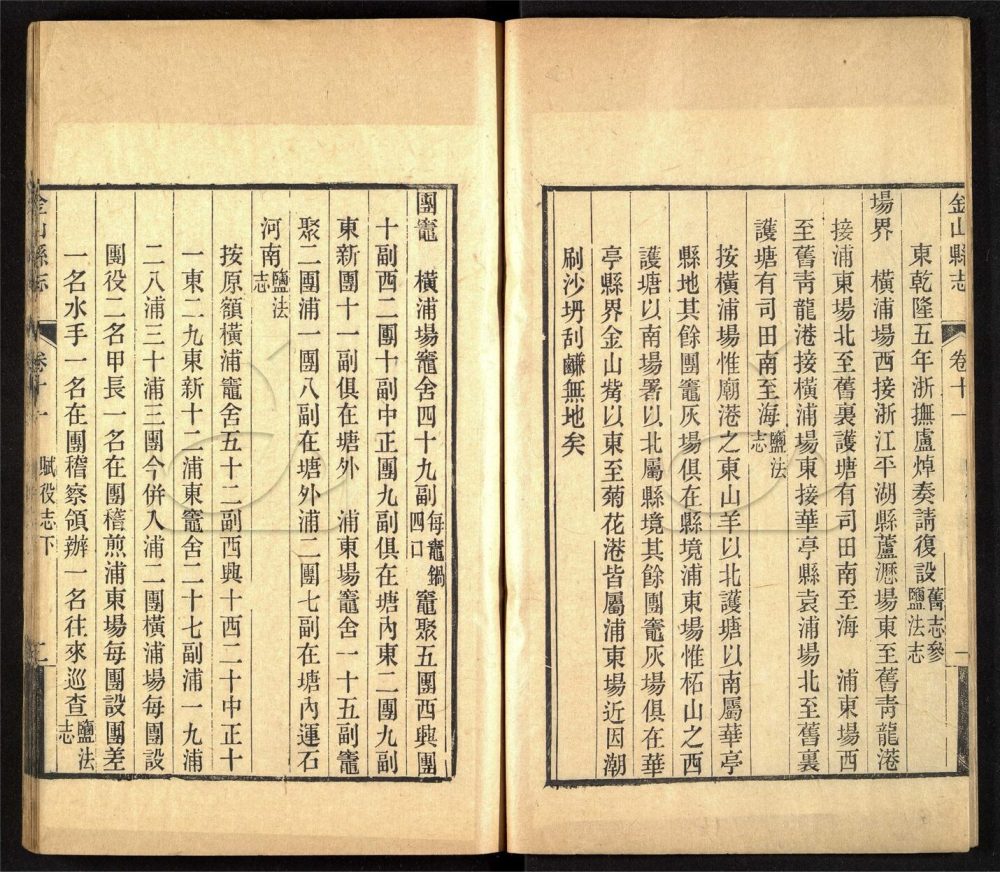 金山縣志 卷十一 一
東乾隆五年浙撫盧焯奏請復設舊志參鹽法志
場界 橫浦場西接浙江平湖縣蘆瀝場東至舊青龍港
接浦東場北至舊裏護塘有司田南至海 浦東場西
至舊青龍港接橫浦場東接華亭縣袁浦場北至舊裏
護塘有司田南至海鹽法志
按橫浦場惟廟港之東山羊以北護塘以南屬華亭
縣地其餘團竈灰場俱在縣境浦東場惟柘山之西
護塘以南場署以北屬縣境其餘團竈灰場俱在華
亭縣界金山觜以東至菊花港皆屬浦東場近因潮
刷沙坍刮鹻無地矣
團竈 橫浦場竈舍四十九副每竈鍋四口竈聚五團西興團
十副西二團十副中正團九副俱在塘內東二團九副
東新團十一副俱在塘外 浦東場竈舍一十五副竈
聚二團浦一團八副在塘外浦二團七副在塘內運石
河南鹽法志
按原額橫浦竈舍五十二副西興十西二十中正十
一東二九東新十二浦東竈舍二十七副浦一九浦
二八浦三十浦三團今併入浦二團橫浦場每團設
團役二名甲長一名在團稽煎浦東場每團設團差
一名水手一名在團稽察領辦一名往來巡查鹽法志
金山縣志 卷十一 賦役志下 二